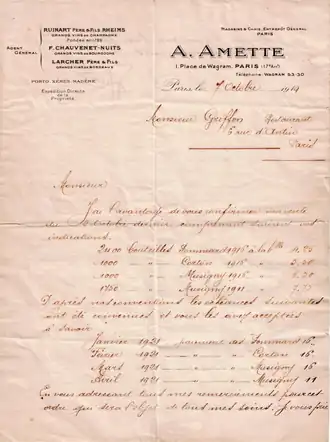 RUINART PÈRE & FILS, RHEIMS
GRANDS VINS DE CHAMPAGNE
Fondée en 1729
AGENT GÉNÉRAL
F. CHAUVENET-NUITS
GRANDS VINS DE BOURGOGNE
LARCHER PÈRE & FILS
GRANDS VINS DE BORDEAUX
PORTO XÉRÈS MADÈRE
Expédition Directe
de la
Propriété
MAGASINS & CAVES, ENTREPÔT GÉNÉRAL
PARIS
A. AMETTE
1, Place de Wagram, PARIS (17e Arrt)
Téléphone: WAGRAM
Paris, le 7 Octobre
Monsieur Griffon Restaurant
5 rue d'Antin
Paris
Monsieur
J'ai l'avantage de vous confirmer ma vente
du Octobre dernier complément suivant est
indications.
2400 Bouteilles Pommard 1916 à la Blle
1000 " " Corton 1916 "
1000 " " Musigny 1916 "
1750 " " Musigny 1911 "
D'après nos conventions les échéances suivantes
ont été convenues et vous les avez acceptées
à savoir
Janvier 1921 paiement des Pommard 16
Février 1921 " " Corton 16
Mars 1921 " " Musigny 16
Avril 1921 " " Musigny 11
En vous adressant tous mes remerciements pour cet
ordre qui sera l'objet de tous mes soins, je vous prie